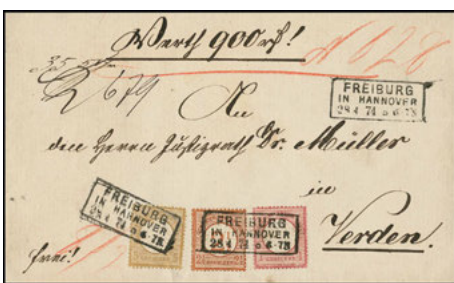 Werth 900 rf!
N 628
679
FREIBURG
IN HANNOVER
28 4 74 6-7N
An
den Herrn Justizrath Dr. Müller
in
Verden.
FREIBURG
IN HANNOVER
28 4 74 6-7N
FREIBURG
IN HANNOVER
28 4 74 6-7N
frei!